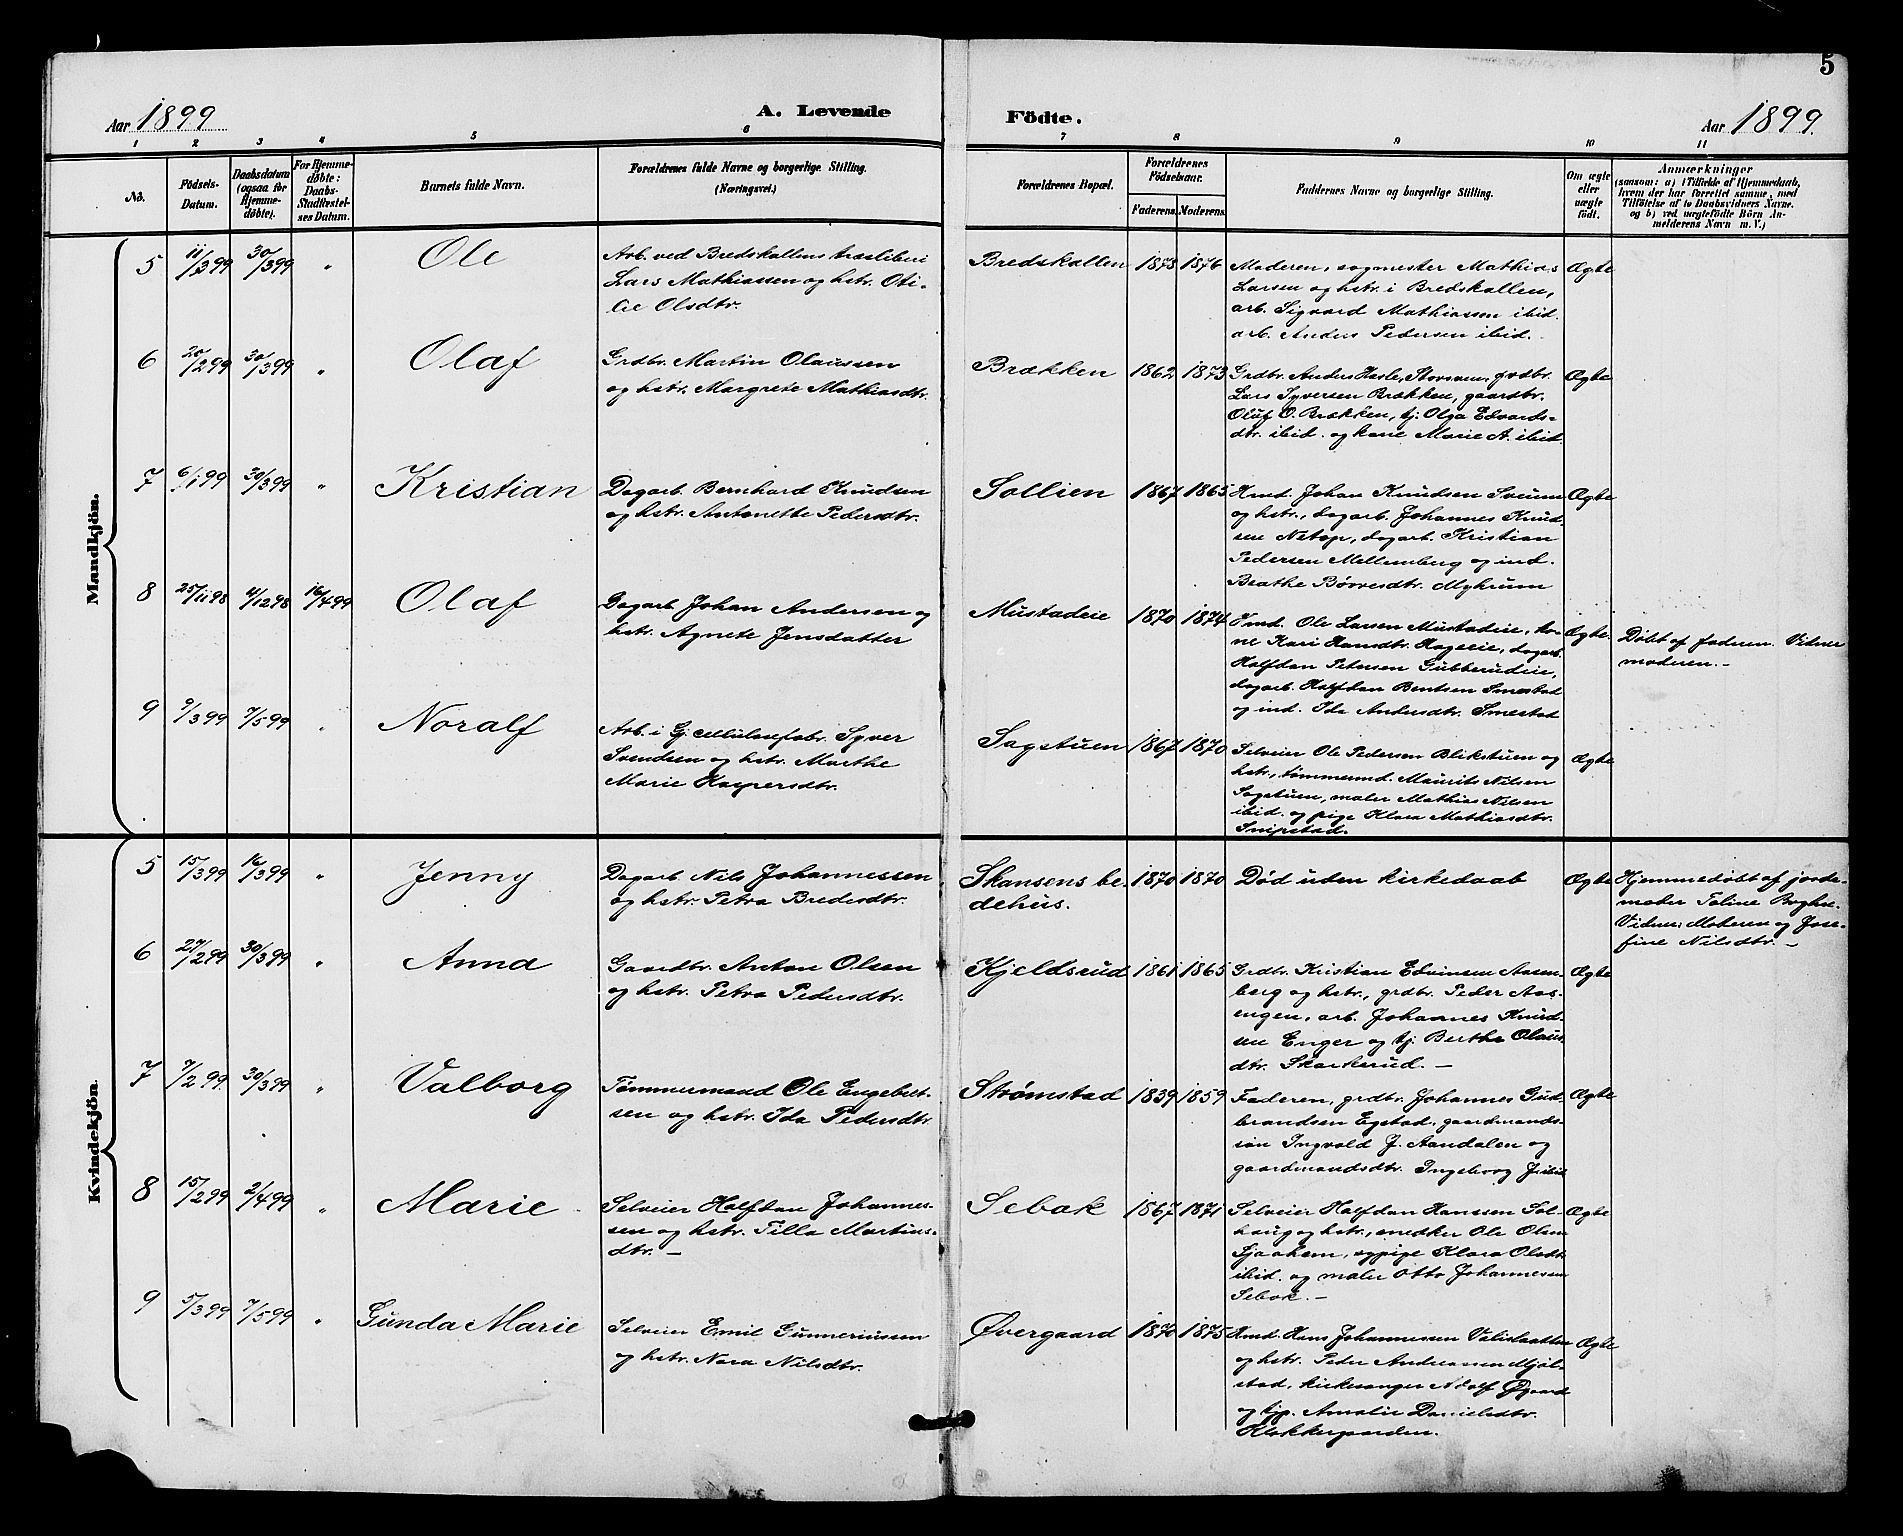 5
Aar 1899
A. Levende Födte.
Aar 1899.
1 2 3 4 5 6 7 8 9 10 11
No.
Födsels-Datum.
Daabsdatum (ogsaa for Hjemmedöbte).
For Hjemmedöbte: Daabs-Stadfæstelses Datum.
Barnets fulde Navn.
Forældrenes fulde Navne og borgerlige Stilling. (Næringsvei.)
Forældrenes Bopæl.
Forældrenes Födselsaar.
Faderens. Moderens.
Faddernes Navne og borgerlige Stilling.
Om ægte eller uægte födt.
Anmærkninger
(saasom: a) i Tilfælde af Hjemmedaab,
hvem der har forrettet samme, med
Tilföielse af to Daabsvidners Navne.
og b) ved uægtefödte Börn An-
melderens Navn m. V.)
Mandkjön.
5 11/3 99 30/3 99 " Ole
Arb. ved Bredskallens træsliberi
Lars Mathiassen og hstr. Oti-
lie Olsdtr.
Bredskallen 1878 1876
Moderen, sagmester Mathias
Larsen og hstr. i Bredskallen,
arb. Sigvard Mathiassen ibid.
arb. Anders Pedersen ibid.
Ægte
6 20/2 99 30/3 99 " Olaf
Grdbr. Martin Olaussen
og hstr. Margrete Mathiasdtr.
Brækken 1862 1873
Grdbr. Anders Hasle, Storsveen, grdbr.
Lars Syversen Brækken, gaardbr.
Oluf O. Brækken, tj. Olga Edvards-
dtr. ibid. og kone Marie A. ibid
Ægte
7 6/1 99 30/3 99 " Kristian
Dagarb. Bernhard Knudsen
og hstr. Antonette Pedersdtr.
Sollien 1867 1865
Hmd. Johan Knudsen Sveum
og hstr., dagarb. Johannes Knud-
sen Netop, dagarb. Kristian
Pedersen Mellemberg og ind.
Brathe Børresdtr. Myhrum
Ægte
8 25/11 98 4/12 98 16/4 99 Olaf
Dagarb. Johan Andersen og
hstr. Agnete Jensdatter
Mustadeie 1870 1874
Hmd. Ole Larsen Mustadeie, ko-
ne Kari Hansdtr. Hageeie, dagarb.
Halfdan Petersen Gubberudeie,
dagarb. Halfdan Bentsen Smestad
og ind. Ida Andersdtr. Smestad
Ægte
Døbt af faderen. Vidner
moderen. –
9 9/3 99 7/5 99 " Noralf
Arb. i Gj. cellulosefabr. Syver
Svendsen og hstr. Marthe
Marie Kaspersdtr.
Sagstuen 1867 1870
Selveier Ole Pedersen Blikstuen og
hstr., tømmermd. Maurits Nilsen
Sagstuen, maler Mathias Nilsen
ibid. og pige Klara Mathiasdtr.
Snipstad.
Ægte
Kvindekjön.
5 15/3 99 16/3 99 " Jenny
Dagarb. Nils Johannessen
og hstr. Petra Bredesdtr.
Skansens be-
dehus.
1870 1870
Død uden kirkedaab
Ægte
Hjemmedøbt af jorde-
moder Taline
Vidner: Moderen og Jose-
fine Nilsdtr. –
6 27/2 99 30/3 99 " Anna
Gaardbr. Anton Olsen
og hstr. Petra Pedersdtr.
Kjeldsrud 1861 1865
Grdbr. Kristian Edvinsen Aasen-
berg og hstr., grdbr. Peder Aas-
engen, arb. Johannes Knud-
sen Enger og tj. Berthe Olaus-
dtr. Skarkerud. –
Ægte
7 7/2 99. 30/3 99 " Valborg
Tømmermand Ole Engebret-
sen og hstr. Ida Pedersdtr.
Strømstad 1839 1859
Faderen, grdbr. Johannes Gud-
brandsen Egstad, gaardmands-
søn Ingvald J. Aandalen og
gaardmandsdtr. Ingeborg J. ibid
Ægte
8 15/2 99 2/4 99 " Marie
Selveier Halfdan Johannes-
sen og hstr. Tilla Martinus-
dtr. –
Sebak 1867 1871
Selveier Halfdan Hanssen Sol-
haug og hstr., snedker Ole Olsen
Sjaahem, sypige Klara Olsdtr.
ibid. og maler Otto Johannesen
Sebak. –
Ægte
9 5/3 99 7/5 99 " Gunda Marie
Selveier Emil Gunneriussen
og hstr. Nora Nilsdtr.
Øvergaard 1870 1875
Hmd. Hans Johannessen
og hstr. Peder Andreassen Mjøl-
stad, kirkesanger Adolf Øgaard
og tjp. Amalie Danielsdtr.
Klokkergaarden.
Ægte